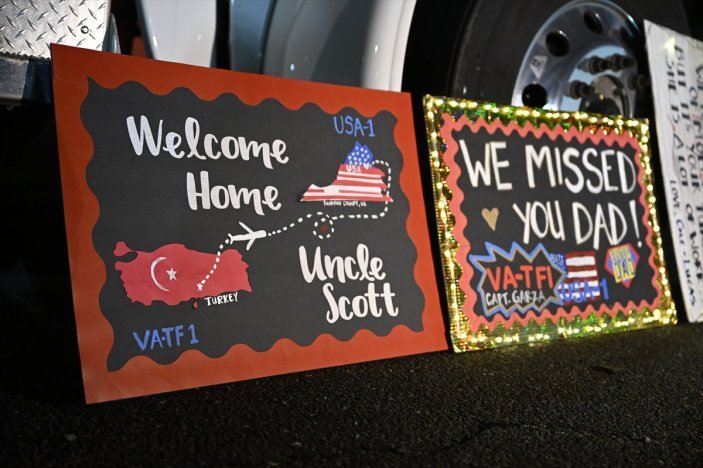 Welcome
Home
USA-1
USA
FAIRFAX COUNTY, VA
TURKEY
Uncle
Scott
VA-TF 1
WE MISSED
YOU DAD!
VA-TF1
CAPT. GARZA
USA-1
DAD